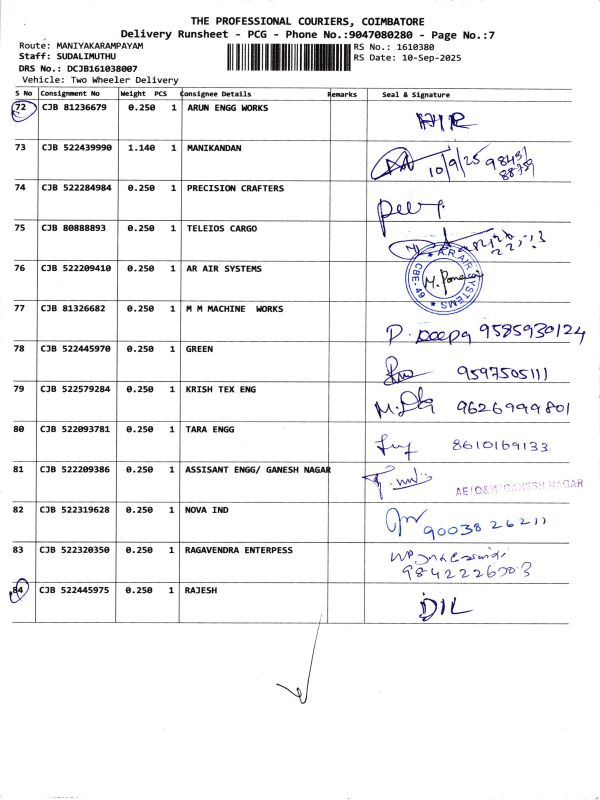 THE PROFESSIONAL COURIERS, COIMBATORE
Delivery Runsheet - PCG - Phone No.:9047080280 - Page No.:7
Route: MANIYAKARAMPAYAM RS No.: 1610380
Staff: SUDALIMUTHU RS Date: 10-Sep-2025
DRS No.: DCJB161038007
Vehicle: Two Wheeler Delivery
S No Consignment No Weight PCS Consignee Details Remarks Seal & Signature
72 CJB 81236679 0.250 1 ARUN ENGG WORKS
73 CJB 522439990 1.140 1 MANIKANDAN 10/9/25
74 CJB 522284984 0.250 1 PRECISION CRAFTERS
75 CJB 80888893 0.250 1 TELEIOS CARGO
76 CJB 522209410 0.250 1 AR AIR SYSTEMS A.R.AIR SYSTEMS CBE-49
77 CJB 81326682 0.250 1 M M MACHINE WORKS P. Deepa 9585930124
78 CJB 522445970 0.250 1 GREEN 9597505111
79 CJB 522579284 0.250 1 KRISH TEX ENG 9626999801
80 CJB 522093781 0.250 1 TARA ENGG 8610169133
81 CJB 522209386 0.250 1 ASSISANT ENGG/ GANESH NAGAR AE/O&M/GANESH NAGAR
82 CJB 522319628 0.250 1 NOVA IND 9003826211
83 CJB 522320350 0.250 1 RAGAVENDRA ENTERPESS
84 CJB 522445975 0.250 1 RAJESH DIL